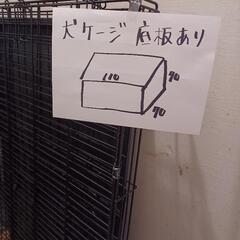 犬ケージ 底板あり
110
90
70